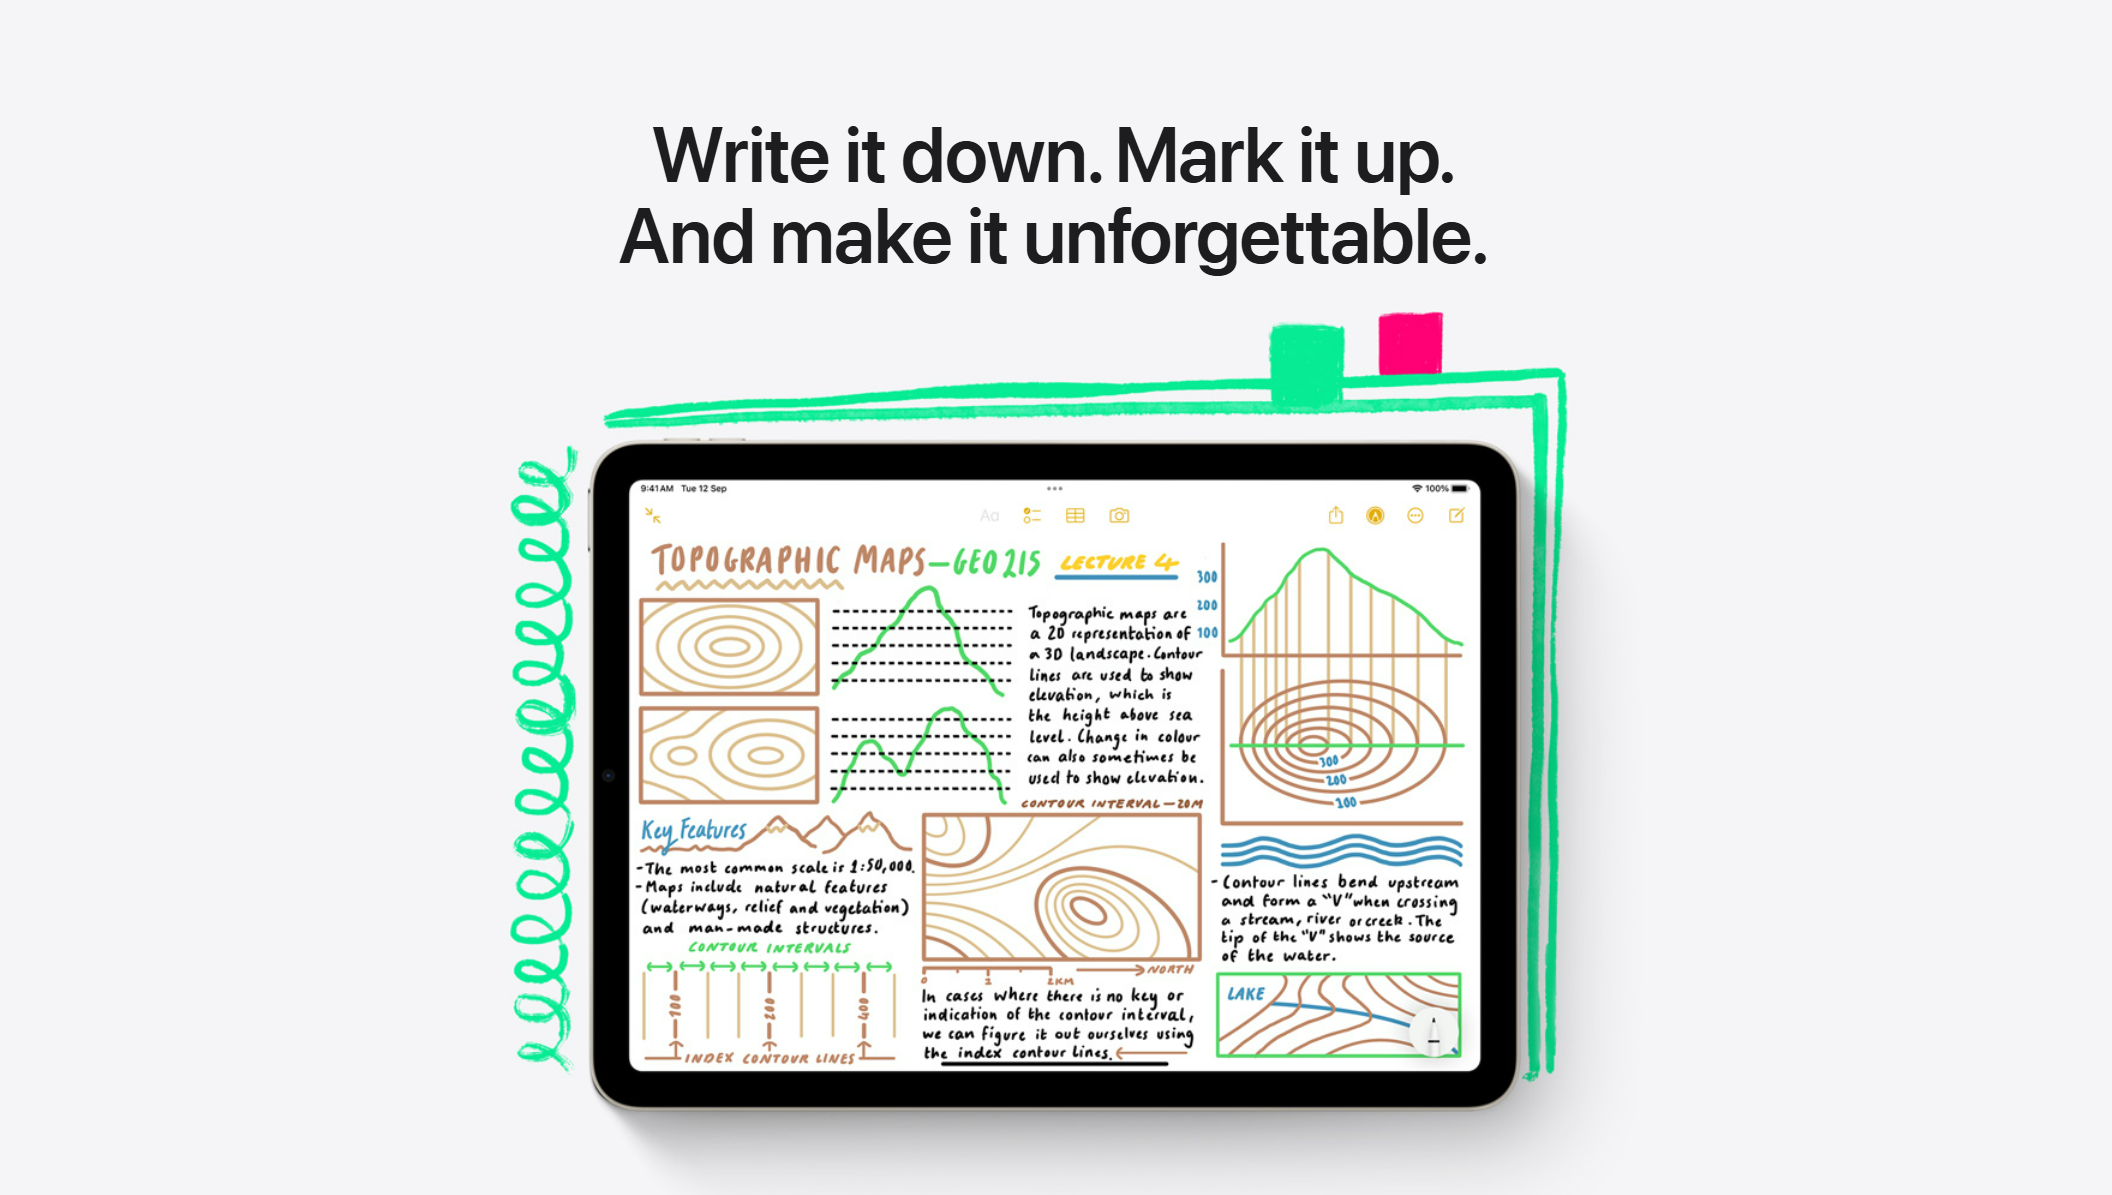 Write it down. Mark it up.
And make it unforgettable.
9:41 AM Tue 12 Sep
100%
Aa
TOPOGRAPHIC MAPS—GEO 215 LECTURE 4
Topographic maps are
a 2D representation of
a 3D landscape. Contour
lines are used to show
elevation, which is
the height above sea
level. Change in colour
can also sometimes be
used to show elevation.
300
200
100
300
200
100
CONTOUR INTERVAL—20M
Key Features
-The most common scale is 1:50,000.
-Maps include natural features
(waterways, relief and vegetation)
and man-made structures.
CONTOUR INTERVALS
100
200
400
INDEX CONTOUR LINES
0 1 2KM
NORTH
In cases where there is no key or
indication of the contour interval,
we can figure it out ourselves using
the index contour lines.
-Contour lines bend upstream
and form a "V" when crossing
a stream, river or creek. The
tip of the "V" shows the source
of the water.
LAKE